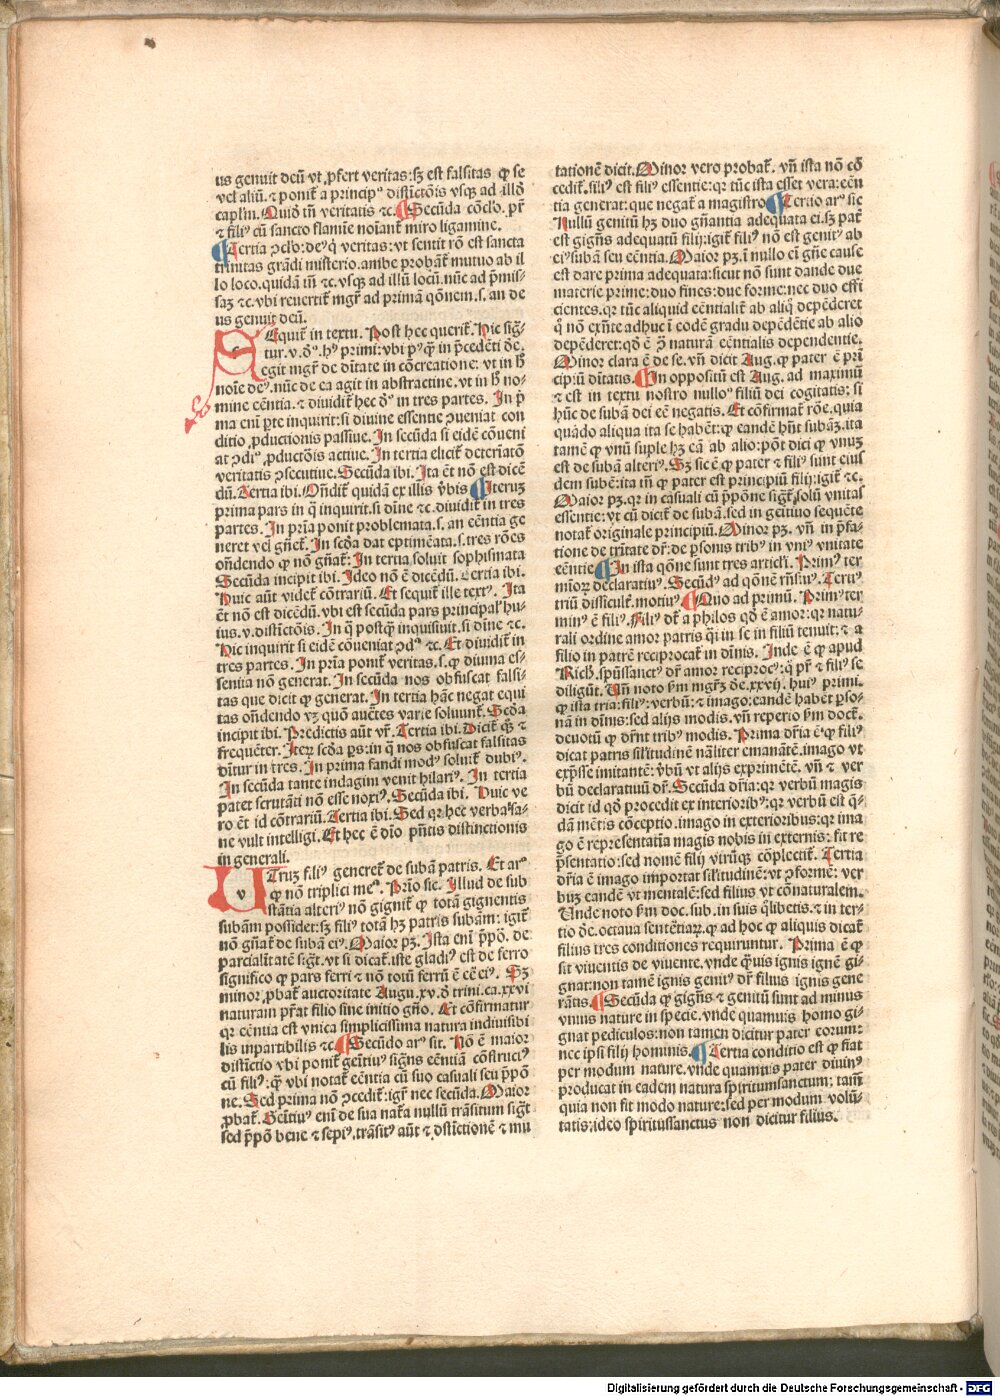 us genuit deū vt ꝓfert veritas: sꝫ est falsitas ꝙ se
vel aliū. ⁊ ponit᷑ a principꝰ distictōis vsqꝫ ad illd̄
caplm̄. Quid tn̄ veritatis ⁊c. ¶ Secūda cōclꝰ. pr̄
⁊ filiꝰ cū sancto flamine noīant᷑ miro ligamine.
¶ Tertia ꝯclꝰ: deꝰ q̇ veritas: vt sentit rō est sancta
trinitas grādi misterio. ambe probāt᷑ mutuo ab il
lo loco. quidā tn̄ ⁊c. vsqꝫ ad illū locū. nūc ad p̄mis-
saꝫ ⁊c. vbi reuertit᷑ mgr̄ ad primā qōnem. s. an de
us genuit deū.
SEquit᷑ in textu. Post hec querit᷑. Hic sig᷑-
tur. v. d̄ꝰ. hꝰ primi: vbi pꝰꝙ in p̄cedēti d̄e.
egit mgr̄ de dītate in cōcreatione: vt in h̄
noīe deꝰ. nūc de ea agit in abstractine. vt in h̄ no-
mine eēntia. ⁊ diuidit᷑ hec d̄ꝰ in tres partes. In p̄
ma enī ꝑte inquirit: si diuine essentie ꝯueniat con
ditio ꝓductionis passiue. In secūda si eidē cōueni
at ꝯdiꝰ ꝓductōis actiue. In tertia elicit᷑ deteriatō
veritatis ꝯsecutiue. Secūda ibi. Ita ēt nō est dicē
dū. Tertia ibi. Ondit᷑ quidā ex illis v̄bis ¶ Iteruꝫ
prima pars in q̇ inquirit. si dīne ⁊c. diuidit᷑ in tres
partes. In pr̄ia ponit problemata. s. an eēntia ge
neret vel gn̄et᷑. In secd̄a dat eptimēata. s. tres rōes
on̄dendo ꝙ nō gn̄at᷑: In tertia soluit sophismata
Secūda incipit ibi. Ideo nō ē dicēdū. Tertia ibi.
Huic aūt videt᷑ cōtrariū. Et sequit᷑ ille textꝰ. Ita
ēt nō est dicēdū. vbi est secūda pars principal' hu-
ius. v. distictōis. In q̇ postꝙ inquisiuit. si dīne ⁊c.
Hic inquirit si eidē cōueniat ꝯdꝰ ⁊c. Et diuidit᷑ in
tres partes. In pr̄ia ponit᷑ veritas. s. ꝙ diuina es-
sentia nō generat. In secūda nos obfuscat falsi-
tas que dicit ꝙ generat. In tertia hāc negat equi
tas on̄dendo vꝫ quō auc̄tes varie soluunt᷑. Secd̄a
incipit ibi. Predictis aūt vr̄. Tertia ibi. Dicit᷑ q̄ꝫ ⁊
frequēter. Iteꝝ secd̄a ꝑs: in q̇ nos obfuscat falsitas
dītur in tres. In prima fandi modꝰ soluit᷑ dubiꝰ.
In secūda tante indagini venit hilariꝰ. In tertia
patet scrutāti nō esse noxiꝰ. Secūda ibi. Huic ve
ro ēt id cōtrariū. Tertia ibi. Sed qr hec verba sa-
ne vult intelligi. Et hec ē dīo pn̄tis distinctionis
in generali.
VTruꝫ filiꝰ generet᷑ de subāa patris. Et arꝰ
ꝙ nō triplici meꝰ. Pr̄io sic. Illud de sub
stātia alteriꝰ nō gignit᷑ ꝙ totā gignentis
subām possidet: sꝫ filiꝰ totā hꝫ patris subām: igit᷑
nō gn̄at᷑ de subāa eiꝰ. Maior pꝫ. Ista enī p̄pō. de
parcialitatē sig᷑t. vt si dicat᷑. iste gladiꝰ est de ferro
significo ꝙ pars ferri ⁊ nō totū ferrū ē cē eiꝰ. Sꝫ
minor ꝓbat᷑ auctoritate Augu. xv. d̄ trini. ca. xxvi
naturam pr̄at filio sine initio gn̄o. Et cōfirmatur
qr eēntia est vnica simplicissima natura indiuisibi
lis inpartibilis ⁊c. ¶ Secūdo arꝰ sic. Nō ē maior
distictio vbi ponit᷑ geītiuꝰ sign̄s eēntiā cōstrucꝰ
cū filiꝰ: ꝙ̄ vbi notat᷑ eēntia cū suo casuali seu p̄pō
ne. Sed prima nō ꝯcedit᷑: igr̄ nec secūda. Maior
ꝓbat᷑. Geītiuꝰ enī de sua nat᷑a nullū trāsitum sig᷑t
sed p̄pō bene ⁊ sepiꝰ. trāsitꝰ aūt ⁊ dstictionē ⁊ mu
tationē dicit. Minor vero probat᷑. vn̄ ista nō cō
cedit᷑. filiꝰ est filiꝰ essentie: qr tūc ista esset vera: eēn
tia generat: que negat᷑ a magistro ¶ Tertio arꝰ sic
Nullū genitū hꝫ duo gn̄antia adequata ei. sꝫ pat᷑
est gign̄s adequatū filij: igit᷑ filiꝰ nō est genitꝰ ab
eiꝰ subāa seu eēntia. Maior pꝫ. ī nullo ei gn̄e cause
est dare prima adequata: sicut nō sunt dande due
materie prime: duo fines: due forme: nec duo effi
cientes. qr tūc aliquid eēntialit᷑ ab aliq̇ depēderet
q̇ nō exn̄te adhuc ī codē gradu depēdētie ab alio
depēderet: qd̄ ē ꝯ̄ naturā eēntialis dependentie.
Minor clara ē de se. vn̄ dicit Aug. ꝙ pater ē prī
cipiū dītatis. ¶ In oppositū est Aug. ad maximū
⁊ est in textu nostro nulloꝰ filiū dei cogitatis: si
hūc de subāa dei eē negatis. Et cōfirmat᷑ rōe. quia
quādo aliqua ita se habēt: ꝙ eandē hn̄t subāꝫ. ita
tamē ꝙ vnū suple hꝫ eā ab alio: pōt dici ꝙ vnuꝫ
est de subāa alteriꝰ. Sꝫ sic ē ꝙ pater ⁊ filiꝰ sunt eius
dem subē: ita tn̄ ꝙ pater est principiū filij: igit᷑ ⁊c.
Maior pꝫ. qr in casuali cū p̄pōne sig᷑t᷑ solū vnitas
essentie: vt cū dicit᷑ de subāa. sed in geītiuo sequēte
notat᷑ originale principiū. Minor pꝫ. vn̄ in p̄fa-
tione de trītate dr̄: de ꝑsonis tribꝰ in vniꝰ vnitate
eēntie ¶ In ista qōne sunt tres articli. Primꝰ ter
mīoꝝ declaratiuꝰ. Secūdꝰ ad qōnē rn̄siuꝰ. Tertiꝰ
triū difficult᷑. motiuꝰ ¶ Quo ad primū. Primꝰ ter
minꝰ ē filiꝰ. Filiꝰ dr̄ a philos qd̄ ē amor: qr natu-
rali ordine amor patris q̇i in se in filiū tenuit: ⁊ a
filio in patrē reciprocat᷑ in dīnis. Inde ē ꝙ apud
Rich. spūssanctꝰ dr̄ amor reciprocꝰ: q̇ pr̄ ⁊ filiꝰ se
diligūt. Vn̄ noto ẜm mgr̄ꝫ d̄e. xxvij. huiꝰ primi.
ꝙ ista tria: filiꝰ: verbū: ⁊ imago: eandē habēt ꝑso-
nā in dīnis: sed alijs modis. vn̄ reperio ẜm doct᷑.
deuotū ꝙ dr̄nt tribꝰ modis. Prima dr̄ia ē ꝙ filiꝰ
dicat patris sil'itudinē nāliter emanātē. imago vt
exp̄sse imitantē: v̄bū vt alijs exprimētē. vn̄ ⁊ ver
bū declaratiuū dr̄. Secūda dr̄ia: qr verbū magis
dicit id qd̄ procedit ex interioribꝰ: qr verbū est q̄-
dā mētis cōceptio. imago in exterioribus: qr ima
go ē representatīa magis nobis in externis: fit re
p̄sentatio: sed nomē filij virūqꝫ cōplectit᷑. Tertia
dr̄ia ē imago importat sil'itudinē: vt ꝯformē: ver
buꝫ eandē vt mentalē: sed filius vt cōnaturalem.
Vnde noto ẜm doc. sub. in suis q̇libetis. ⁊ in ter-
tio d̄e. octaua sentētiaꝝ. ꝙ ad hoc ꝙ aliquis dicat᷑
filius tres conditiones requiruntur. Prima ē ꝙ
sit viuentis de viuente. vnde q̄uis ignis ignē gi-
gnat: non tamē ignis genitꝰ dr̄ filius ignis gene
rātis. ¶ Secūda ꝙ gign̄s ⁊ genitū sunt ad minus
vnius nature in specie. vnde quamuis homo gi-
gnat pediculos: non tamen dicitur pater eorum:
nec ipsi filij hominis. ¶ Tertia conditio est ꝙ fiat
per modum nature. vnde quamuis pater diuinꝰ
producat in eadem natura spiritumsanctum: tam̄
quia non fit modo nature: sed per modum volū-
tatis: ideo spiritussanctus non dicitur filius.
Digitalisierung gefördert durch die Deutsche Forschungsgemeinschaft - DFG